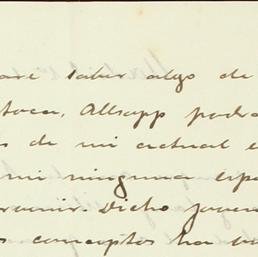 saber algo de
Allsapp podra
s de mi actual e
mi ninguna espe
rvenir. Dicho joven
s conceptos ha